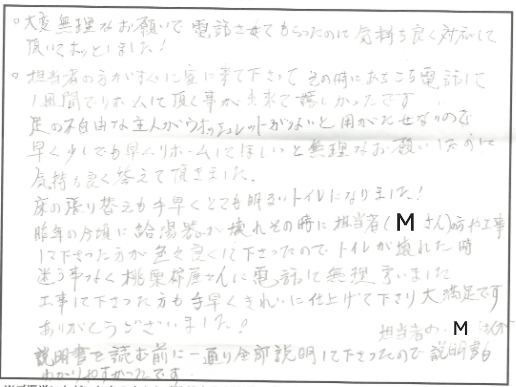 ○大変無理なお願いで電話させてもらったのに気持ち良く対応して
頂いてホッとしました!
○担当者の方がすぐに家に来て下さって その時にあちこち電話して
1週間でリホームして頂く事が出来て嬉しかったです
足の不自由な主人がウオッシュレットがないと用がたせないので
早く少しでも早くリホームしてほしいと無理なお願いしたのに
気持ち良く答えて頂きました.
床の張り替えも手早くとても明るいトイレになりました!
昨年の今頃に給湯器が壊れその時に担当者(Mさん)方や工事
して下さった方が色々良くして下さったのでトイレが壊れた時
迷う事なく桃栗柿屋さんに電話して無理言いました
工事して下さった方も手早くきれいに仕上げて下さり大満足です
ありがとうございました!
担当者の. M さんが
説明書を読む前に一通り全部説明して下さったので説明書も
わかりやすかったです